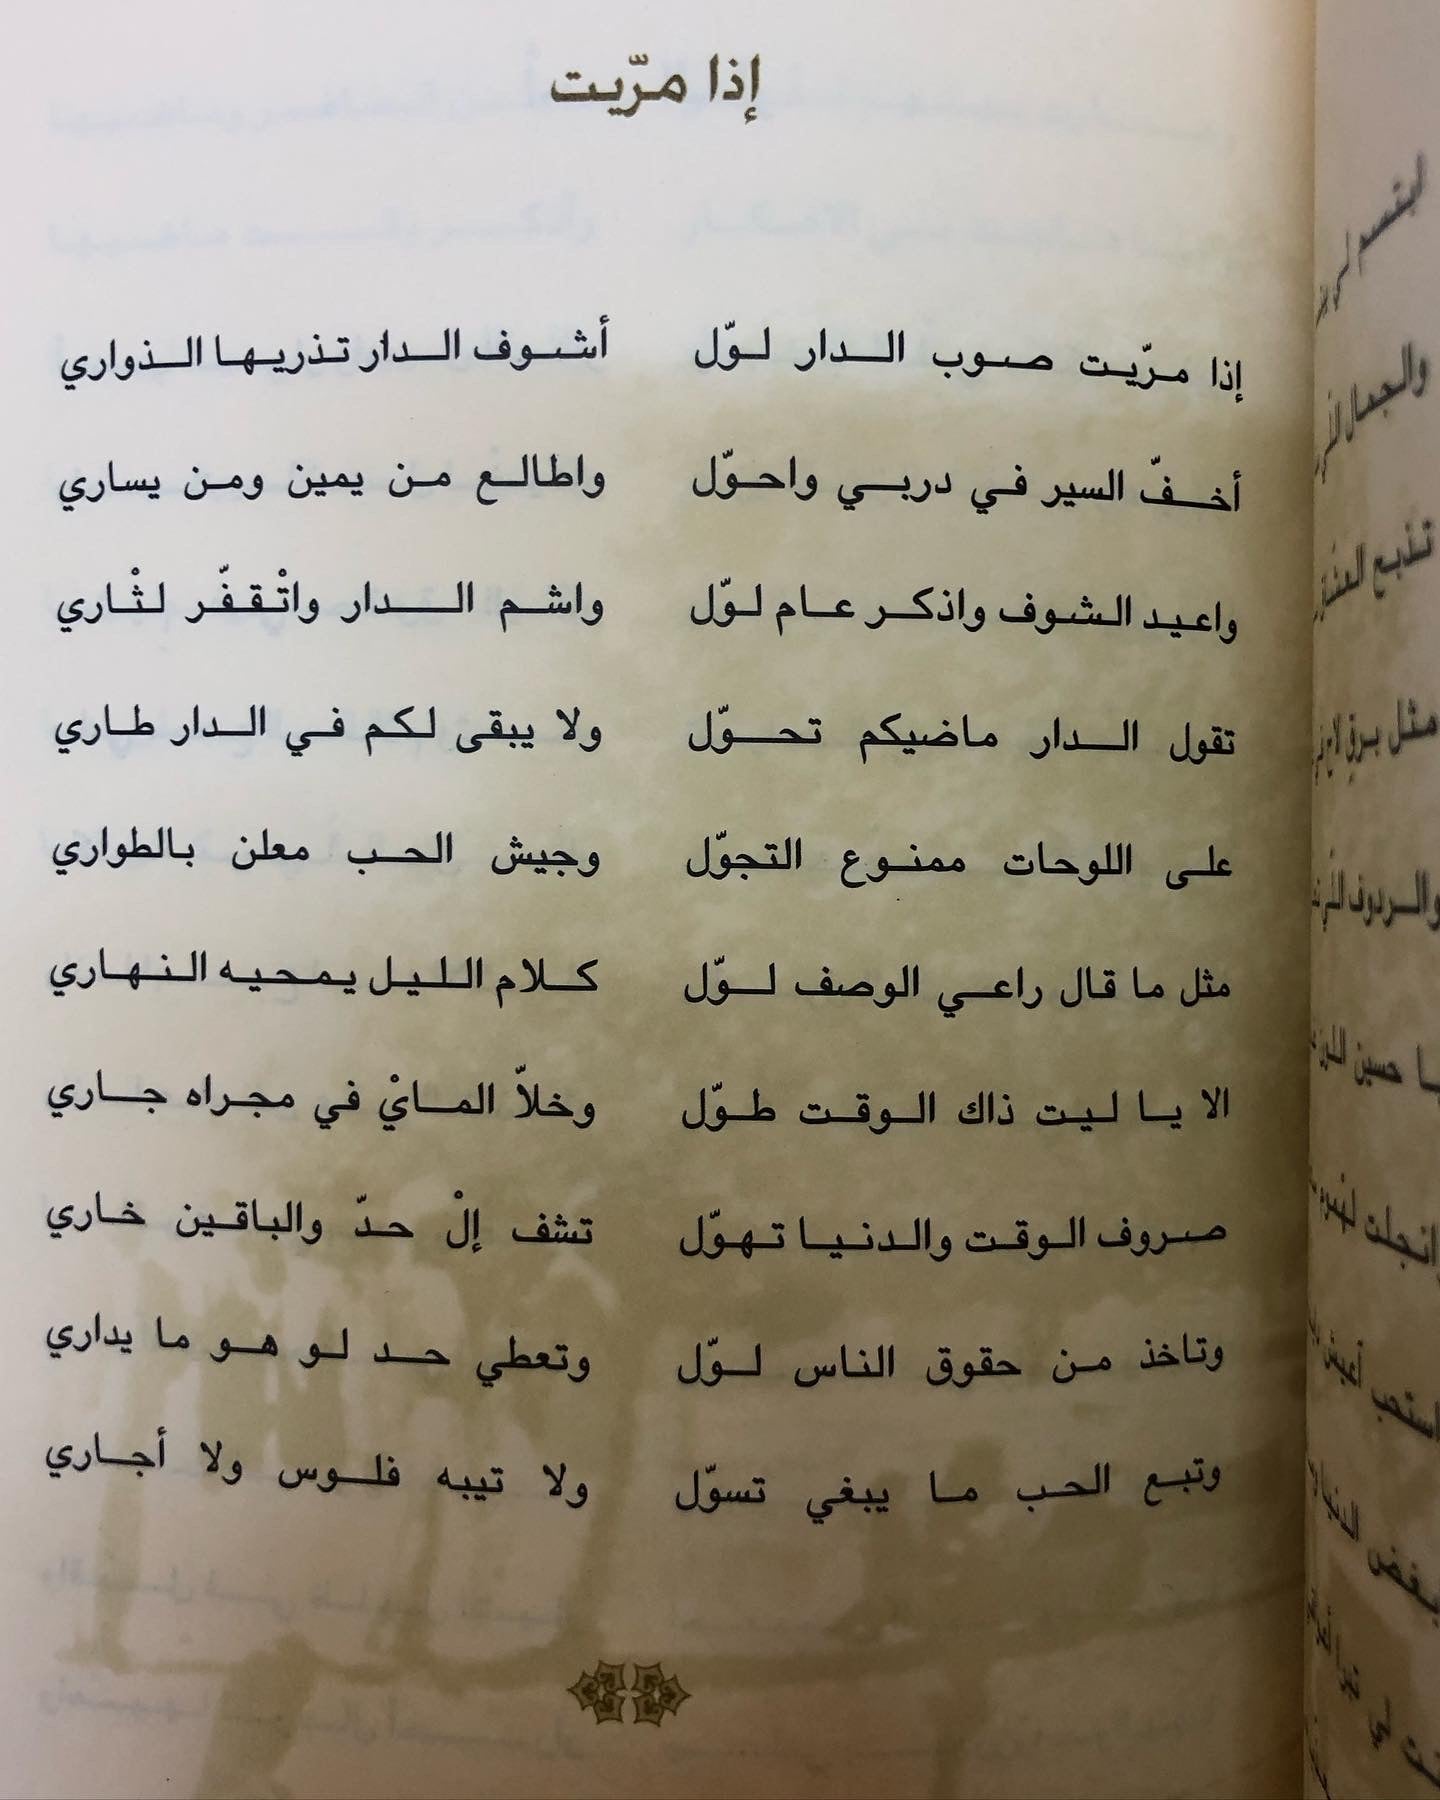 إذا مرّيت
إذا مرّيت صوب الدار لوّل أشوف الدار تذريها الذواري
أخفّ السير في دربي واحوّل واطالع من يمين ومن يساري
واعيد الشوف واذكر عام لوّل واشم الدار واتْقفّر لثْاري
تقول الدار ماضيكم تحوّل ولا يبقى لكم في الدار طاري
على اللوحات ممنوع التجوّل وجيش الحب معلن بالطواري
مثل ما قال راعي الوصف لوّل كلام الليل يمحيه النهاري
الا يا ليت ذاك الوقت طوّل وخلاّ المايْ في مجراه جاري
صروف الوقت والدنيا تهوّل تشف إلْ حدّ والباقين خاري
وتاخذ من حقوق الناس لوّل وتعطي حد لو هو ما يداري
وتبع الحب ما يبغي تسوّل ولا تيبه فلوس ولا أجاري
والجمال
مثل برق
يا حسين